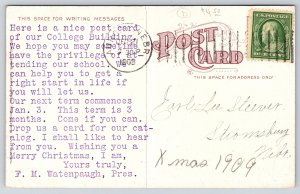 THIS SPACE FOR WRITING MESSAGES
Here is a nice post card
of our College Building.
We hope you may sometime
have the privilege of at-
tending our school. We
can help you to get a
right start in life if
you will let us.
Our next term commences
Jan. 3. This term is 3
months. Come if you can.
Drop us a card for our cat-
alog. I shall like to hear
from you. Wishing you a
Merry Christmas, I am,
Yours truly,
F. M. Watenpaugh, Pres.
NEBR
1909
POST
CARD
THIS SPACE FOR ADDRESS ONLY
Stromsburg
Nebr.
Xmas 1909